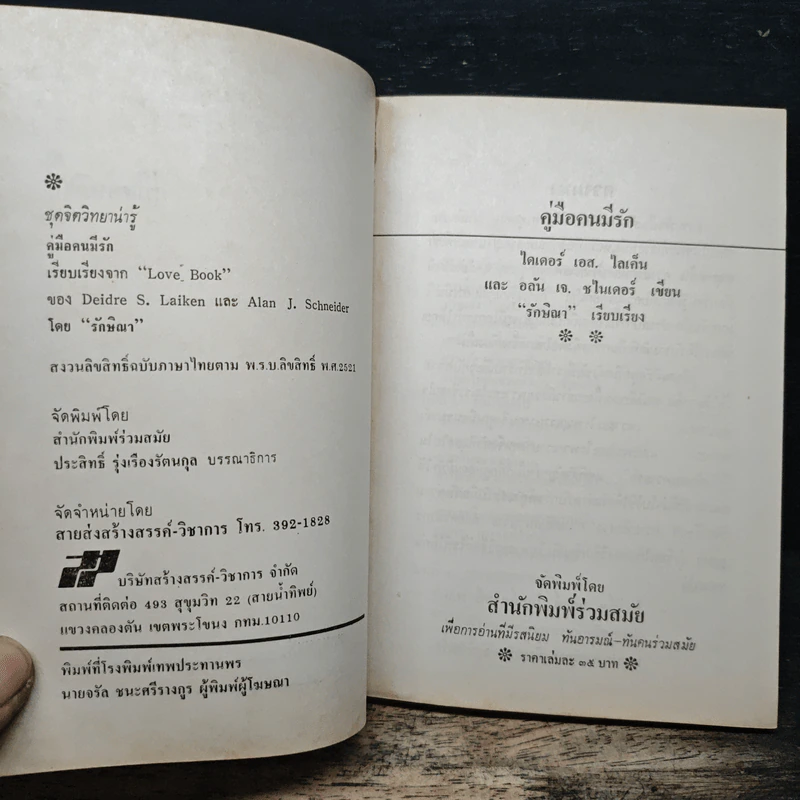 ชุดจิตวิทยาน่ารู้
คู่มือคนมีรัก
เรียบเรียงจาก “Love Book”
ของ Deidre S. Laiken และ Alan J. Schneider
โดย “รักษิณา”
สงวนลิขสิทธิ์ฉบับภาษาไทยตาม พ.ร.บ.ลิขสิทธิ์ พ.ศ.2521
จัดพิมพ์โดย
สำนักพิมพ์ร่วมสมัย
ประสิทธิ์ รุ่งเรืองรัตนกุล บรรณาธิการ
จัดจำหน่ายโดย
สายส่งสร้างสรรค์-วิชาการ โทร. 392-1828
บริษัทสร้างสรรค์-วิชาการ จำกัด
สถานที่ติดต่อ 493 สุขุมวิท 22 (สายน้ำทิพย์)
แขวงคลองตัน เขตพระโขนง กทม.10110
พิมพ์ที่โรงพิมพ์เทพประทานพร
นายจรัล ชนะศรีรางกูร ผู้พิมพ์ผู้โฆษณา
คู่มือคนมีรัก
ไดเดอร์ เอส. ไลเค็น
และ อลัน เจ. ชไนเดอร์ เขียน
“รักษิณา” เรียบเรียง
จัดพิมพ์โดย
สำนักพิมพ์ร่วมสมัย
เพื่อการอ่านที่มีรสนิยม ทันอารมณ์-ทันคนร่วมสมัย
ราคาเล่มละ ๓๕ บาท